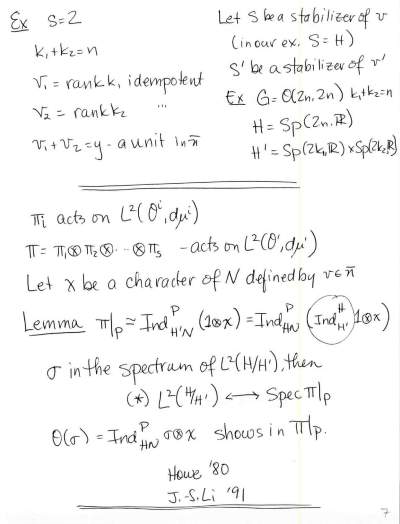 Ex S=2
k₁+k₂=n
v₁ = rank k, idempotent
v₂ = rank k₂ ...
v₁+v₂=y - a unit in n̄
Let S be a stabilizer of v
(in our ex. S=H)
S' be a stabilizer of v'
Ex G=O(2n,2n) k₁+k₂=n
H=Sp(2n,ℝ)
H'=Sp(2k₁,ℝ)×Sp(2k₂,ℝ)
πᵢ acts on L²(Oⁱ,dμⁱ)
π=π₁⊗π₂⊗···⊗πₛ -acts on L²(O',dμ')
Let χ be a character of N defined by v∈n̄
Lemma π|P ≃ Ind^P_{H'N} (1⊗χ) = Ind^P_{HN} (Ind^H_{H'} 1⊗χ)
σ in the spectrum of L²(H/H'), then
(*) L²(H/H') ⟷ Spec π|P
Θ(σ) = Ind^P_{HN} σ⊗χ shows in π|P.
Howe '80
J.-S. Li '91
7